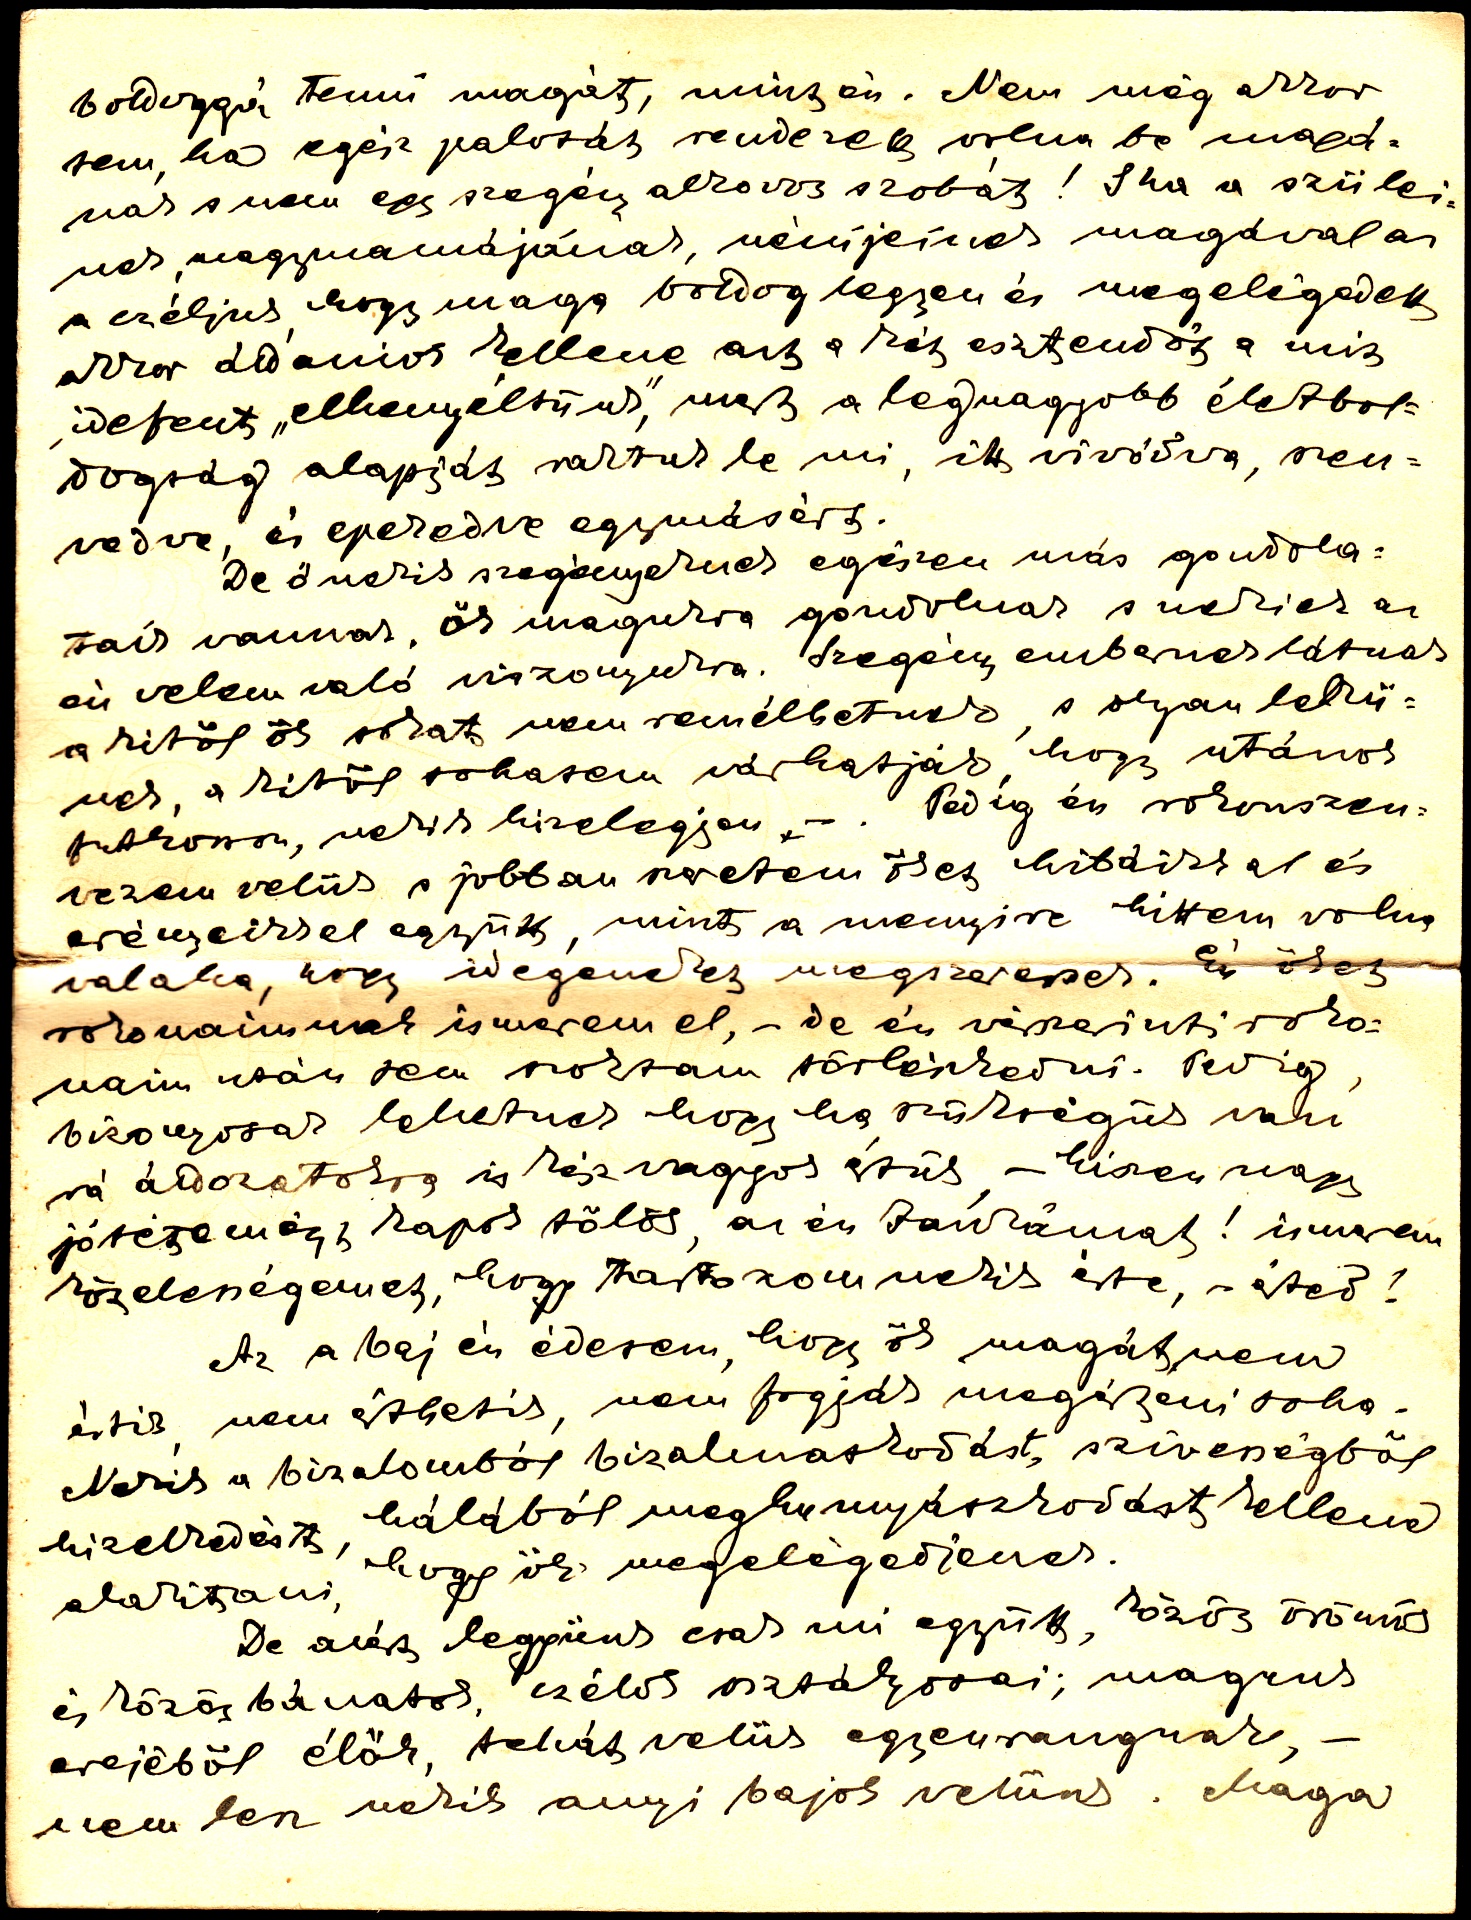 boldoggá tenni magát, mint én. Nem még akkor
sem, ha egész palotát rendezek volna be magá-
nak s nem egy szegény albérlős szobát! S ha a szülei-
nek, nagymamájának, nénijeinek magával az
a czéljuk, hogy maga boldog legyen és megelégedett
akkor áldaniok kellene azt a két esztendőt a mit
idefent „elhenyéltünk", mert a legnagyobb életbol-
dogság alapját raktuk le mi, itt vívódva, szen-
vedve, és epekedve egymásért.
De ő nekik szegényeknek egészen más gondola-
taik vannak. Ők magukra gondolnak s nekiek az
én velem való viszonyukra. Szegény embernek látnak
a kitől ők sokat nem remélhetnek, s olyan lelkü-
nek, a kitől sohasem várhatják, hogy utánok
futkosson, nekik hizelegjen, –. Pedig én rokonszen-
vezem velük s jobban szeretem őket hibáikkal és
erényeikkel együtt, mint a mennyire hittem volna
valaha, hogy idegeneket megszeressek. Én őket
rokonaimnak ismerem el, – de én vérszerinti roko-
naim után sem szoktam törleszkedni. Pedig,
bizonyosak lehetnek hogy ha szükségük van
rá áldozatokra is kész vagyok értük, – hiszen nagy
jótéteményt kapok tőlök, az én Jankámat! ismerem
kötelességemet, hogy tartozom nekik érte, – érted!
Az a baj én édesem, hogy ők magát nem
értik, nem érthetik, nem fogják megérteni soha.
Nekik a bizalomból bizalmaskodást, szívességből
hizelkedést, hálából meghunyászkodást kellene
alakitani, hogy ők megelégedjenek.
De azért legyünk csak mi együtt, közös örömök
és közös bánatok, czélok osztályosai; magunk
erejéből élők, tehát velük egyenranguak, –
nem lesz nekik annyi bajok velünk. Maga